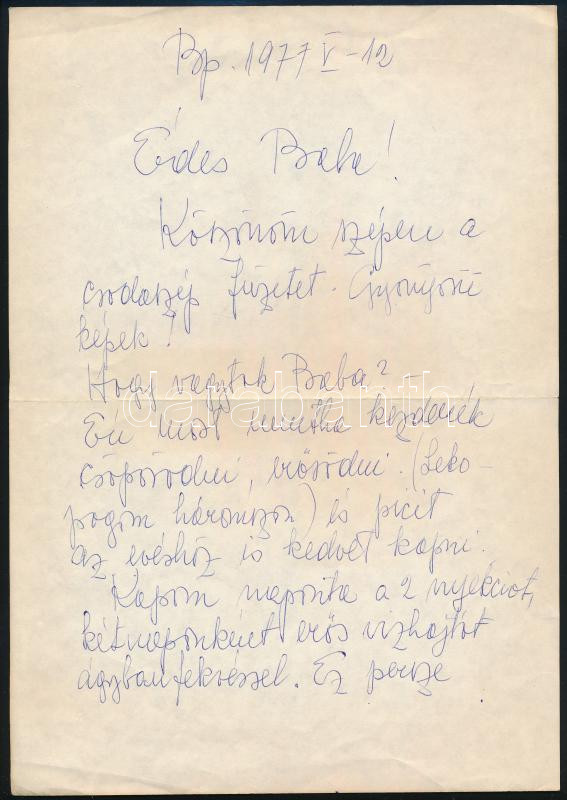 Bp. 1977 V-12
Édes Baba!
Köszönöm szépen a
csodaszép füzetet. Gyönyörü
képek!
Hogy vagytok Baba? –
Én most mintha kezdenék
csöpörödni, erősödni. (Leko-
pogom háromszor) és picit
az evéshez is kedvet kapni.
Kapom naponta a 2 nyekciot,
kétnaponként erős vizhajtót
ágybanfekvéssel. Ez persze
darabanth